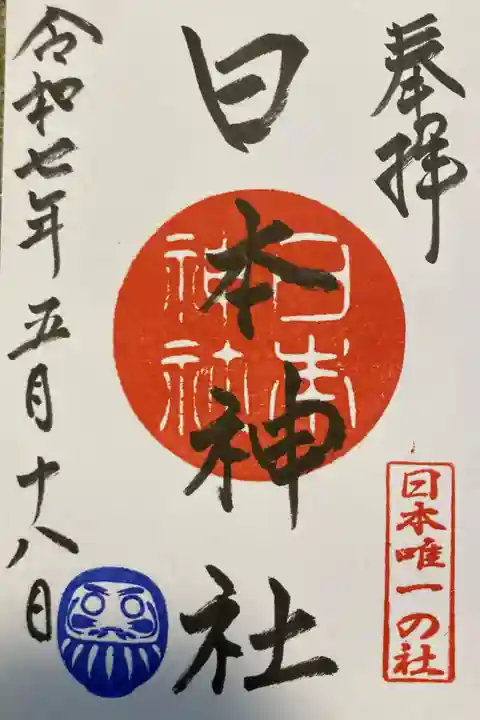 奉拝
日本神社
日本
神社
日本唯一の社
令和七年五月十八日